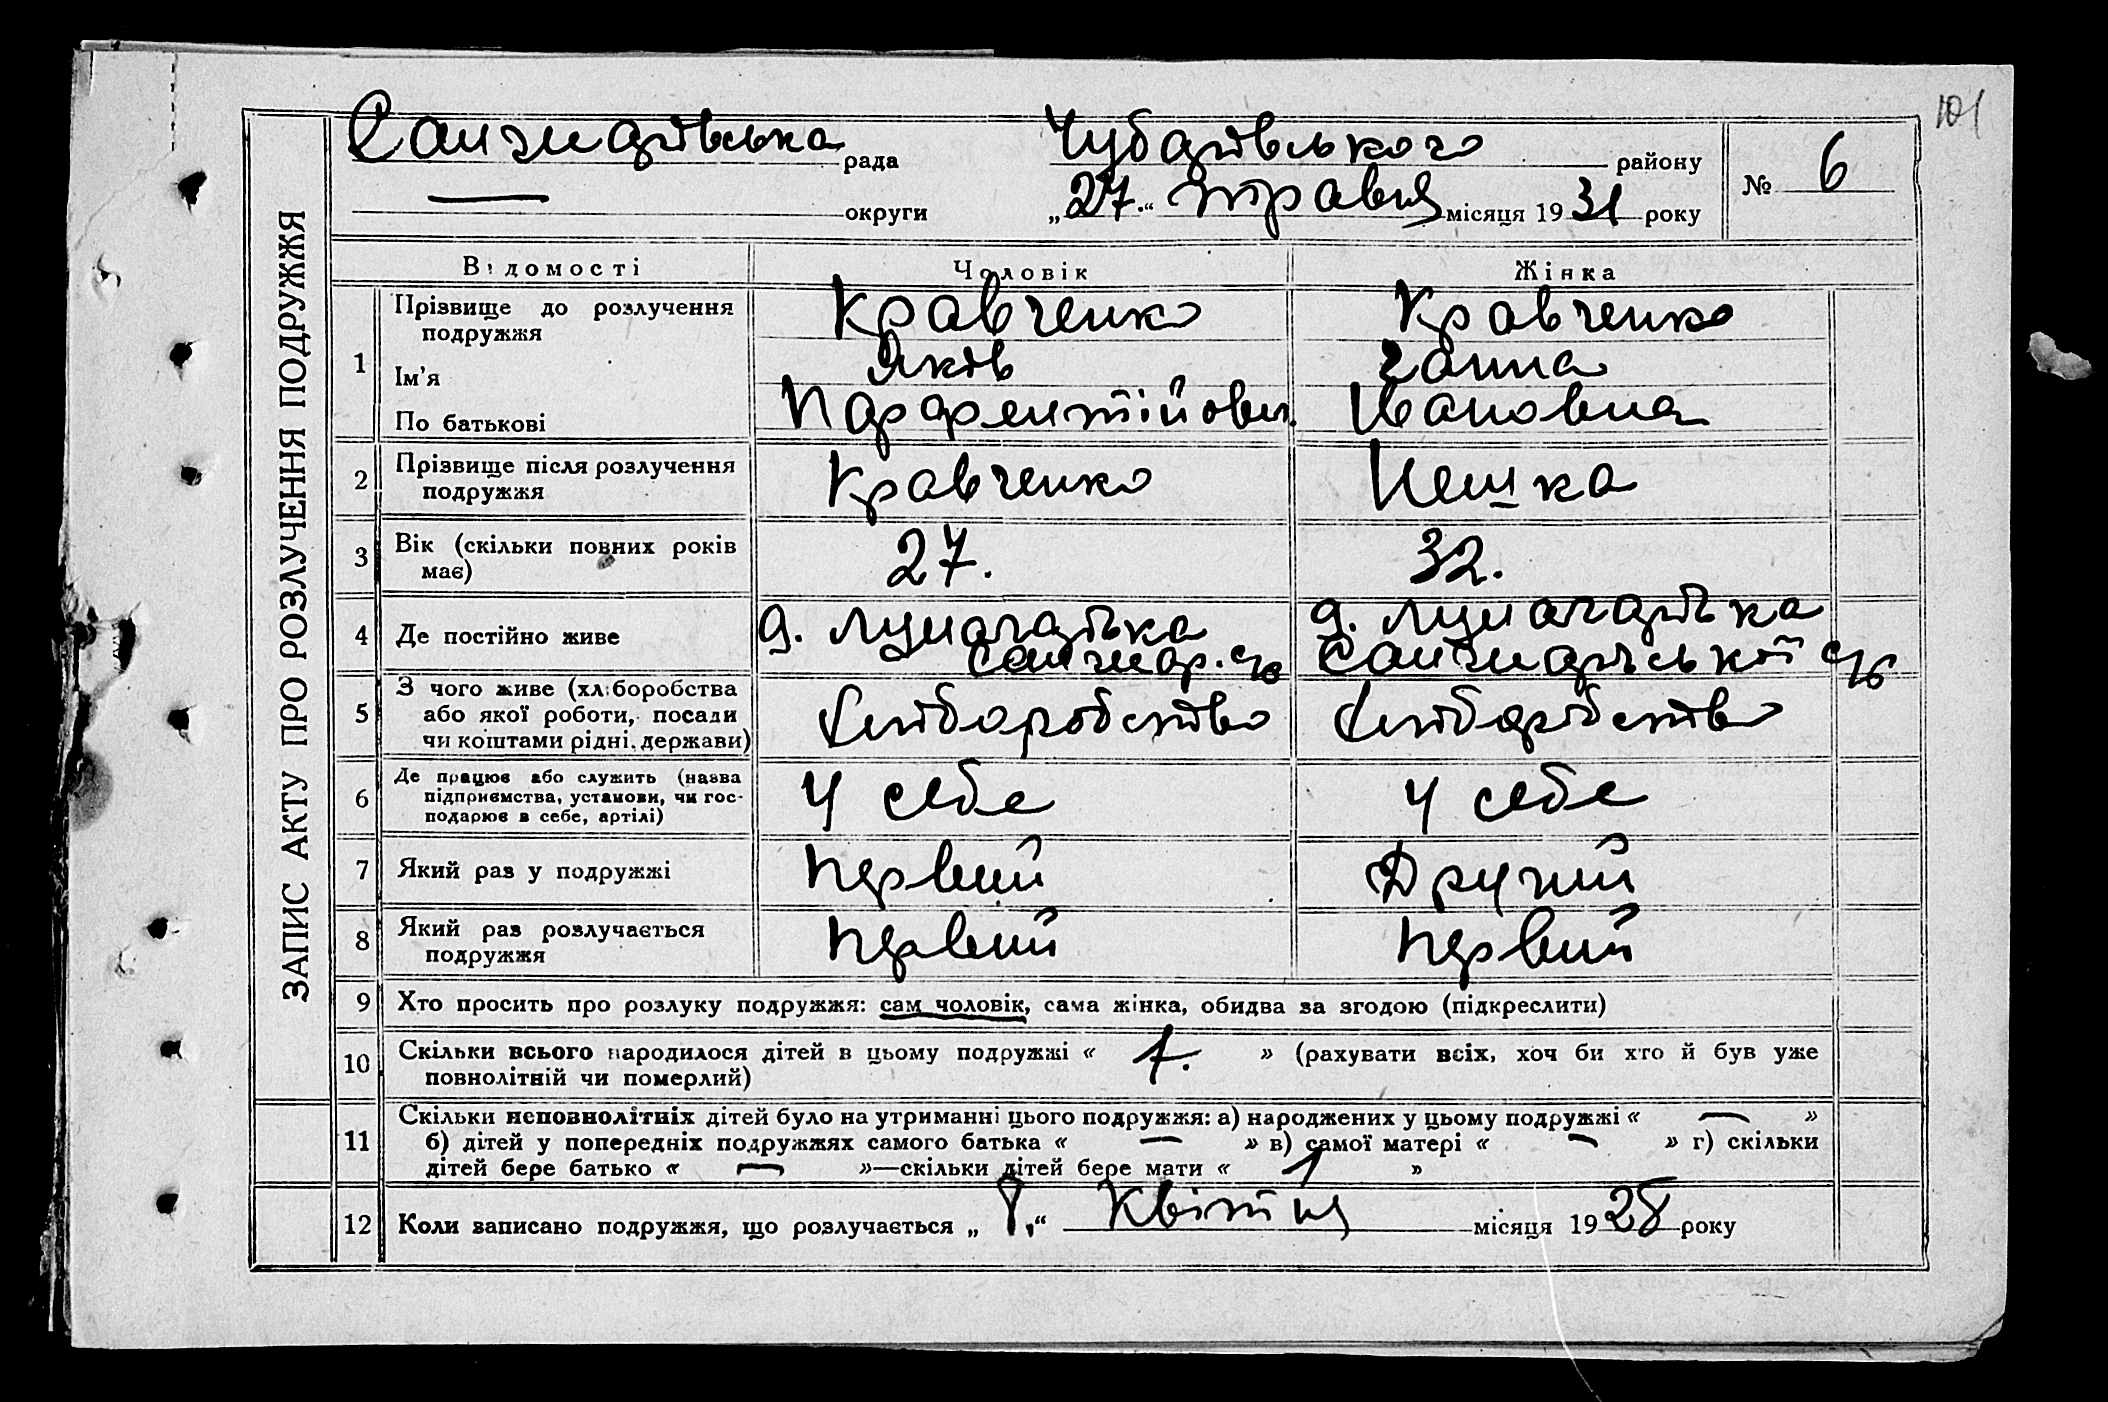 101
ЗАПИС АКТУ ПРО РОЗЛУЧЕННЯ ПОДРУЖЖЯ
Санжарівська рада Чубарівського району № 6
округи „27.“ травня місяця 1931 року
Відомості Чоловік Жінка
1 Прізвище до розлучення подружжя Кравченко Кравченко
Ім’я Яків Ганна
По батькові Парфентійович. Івановна
2 Прізвище після розлучення подружжя Кравченко Пешка
3 Вік (скільки повних років має) 27. 32.
4 Де постійно живе д. Луначарська Санжар. с/р д. Луначарська Санжарівської с/р
5 З чого живе (хліборобства або якої роботи, посади чи коштами рідні, держави) Хліборобство Хліборобство
6 Де працює або служить (назва підприємства, установи, чи господарює в себе, артілі) У себе У себе
7 Який раз у подружжі Первий Другий
8 Який раз розлучається подружжя Первий Первий
9 Хто просить про розлуку подружжя: сам чоловік, сама жінка, обидва за згодою (підкреслити)
10 Скільки всього народилося дітей в цьому подружжі « 1. » (рахувати всіх, хоч би хто й був уже
повнолітній чи померлий)
11 Скільки неповнолітніх дітей було на утриманні цього подружжя: а) народжених у цьому подружжі « — »
б) дітей у попередніх подружжях самого батька « — » в) самої матері « — » г) скільки
дітей бере батько « — »—скільки дітей бере мати « 1 »
12 Коли записано подружжя, що розлучається „ 8.“ Квітня місяця 1928 року